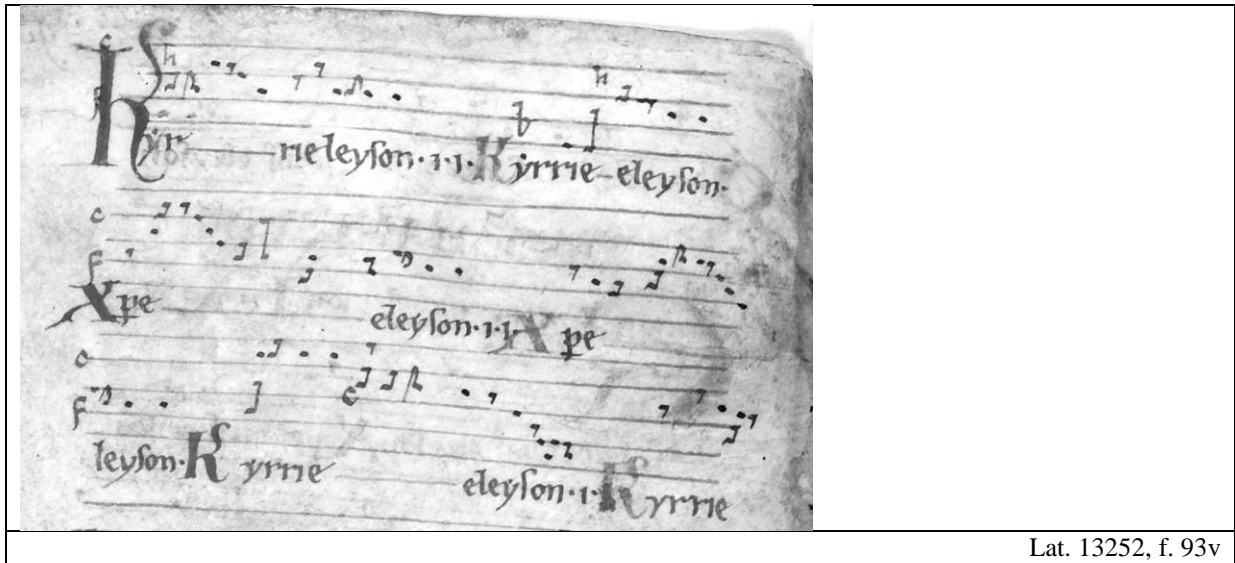 Kyr rieleyson · i · i · Kyrrie eleyson ·
Xpe eleyson · i · i · Xpe
leyson · Kyrrie eleyson · i · Kyrrie
Lat. 13252, f. 93v